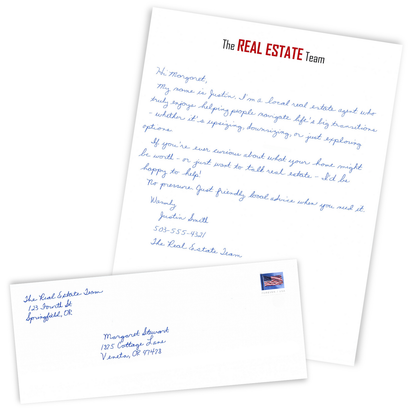 The REAL ESTATE Team
Hi Margaret,
My name is Justin. I'm a local real estate agent who
truly enjoys helping people navigate life's big transitions
- whether it's upsizing, downsizing, or just exploring
options.
If you're ever curious about what your home might
be worth - or just want to talk real estate - I'd be
happy to help!
No pressure. Just friendly local advice when you need it.
Warmly
Justin Smith
503-555-4321
The Real Estate Team
The Real Estate Team
123 Fourth St
Springfield, OR
Margaret Stewart
1375 Cottage Lane
Veneta, OR 97478